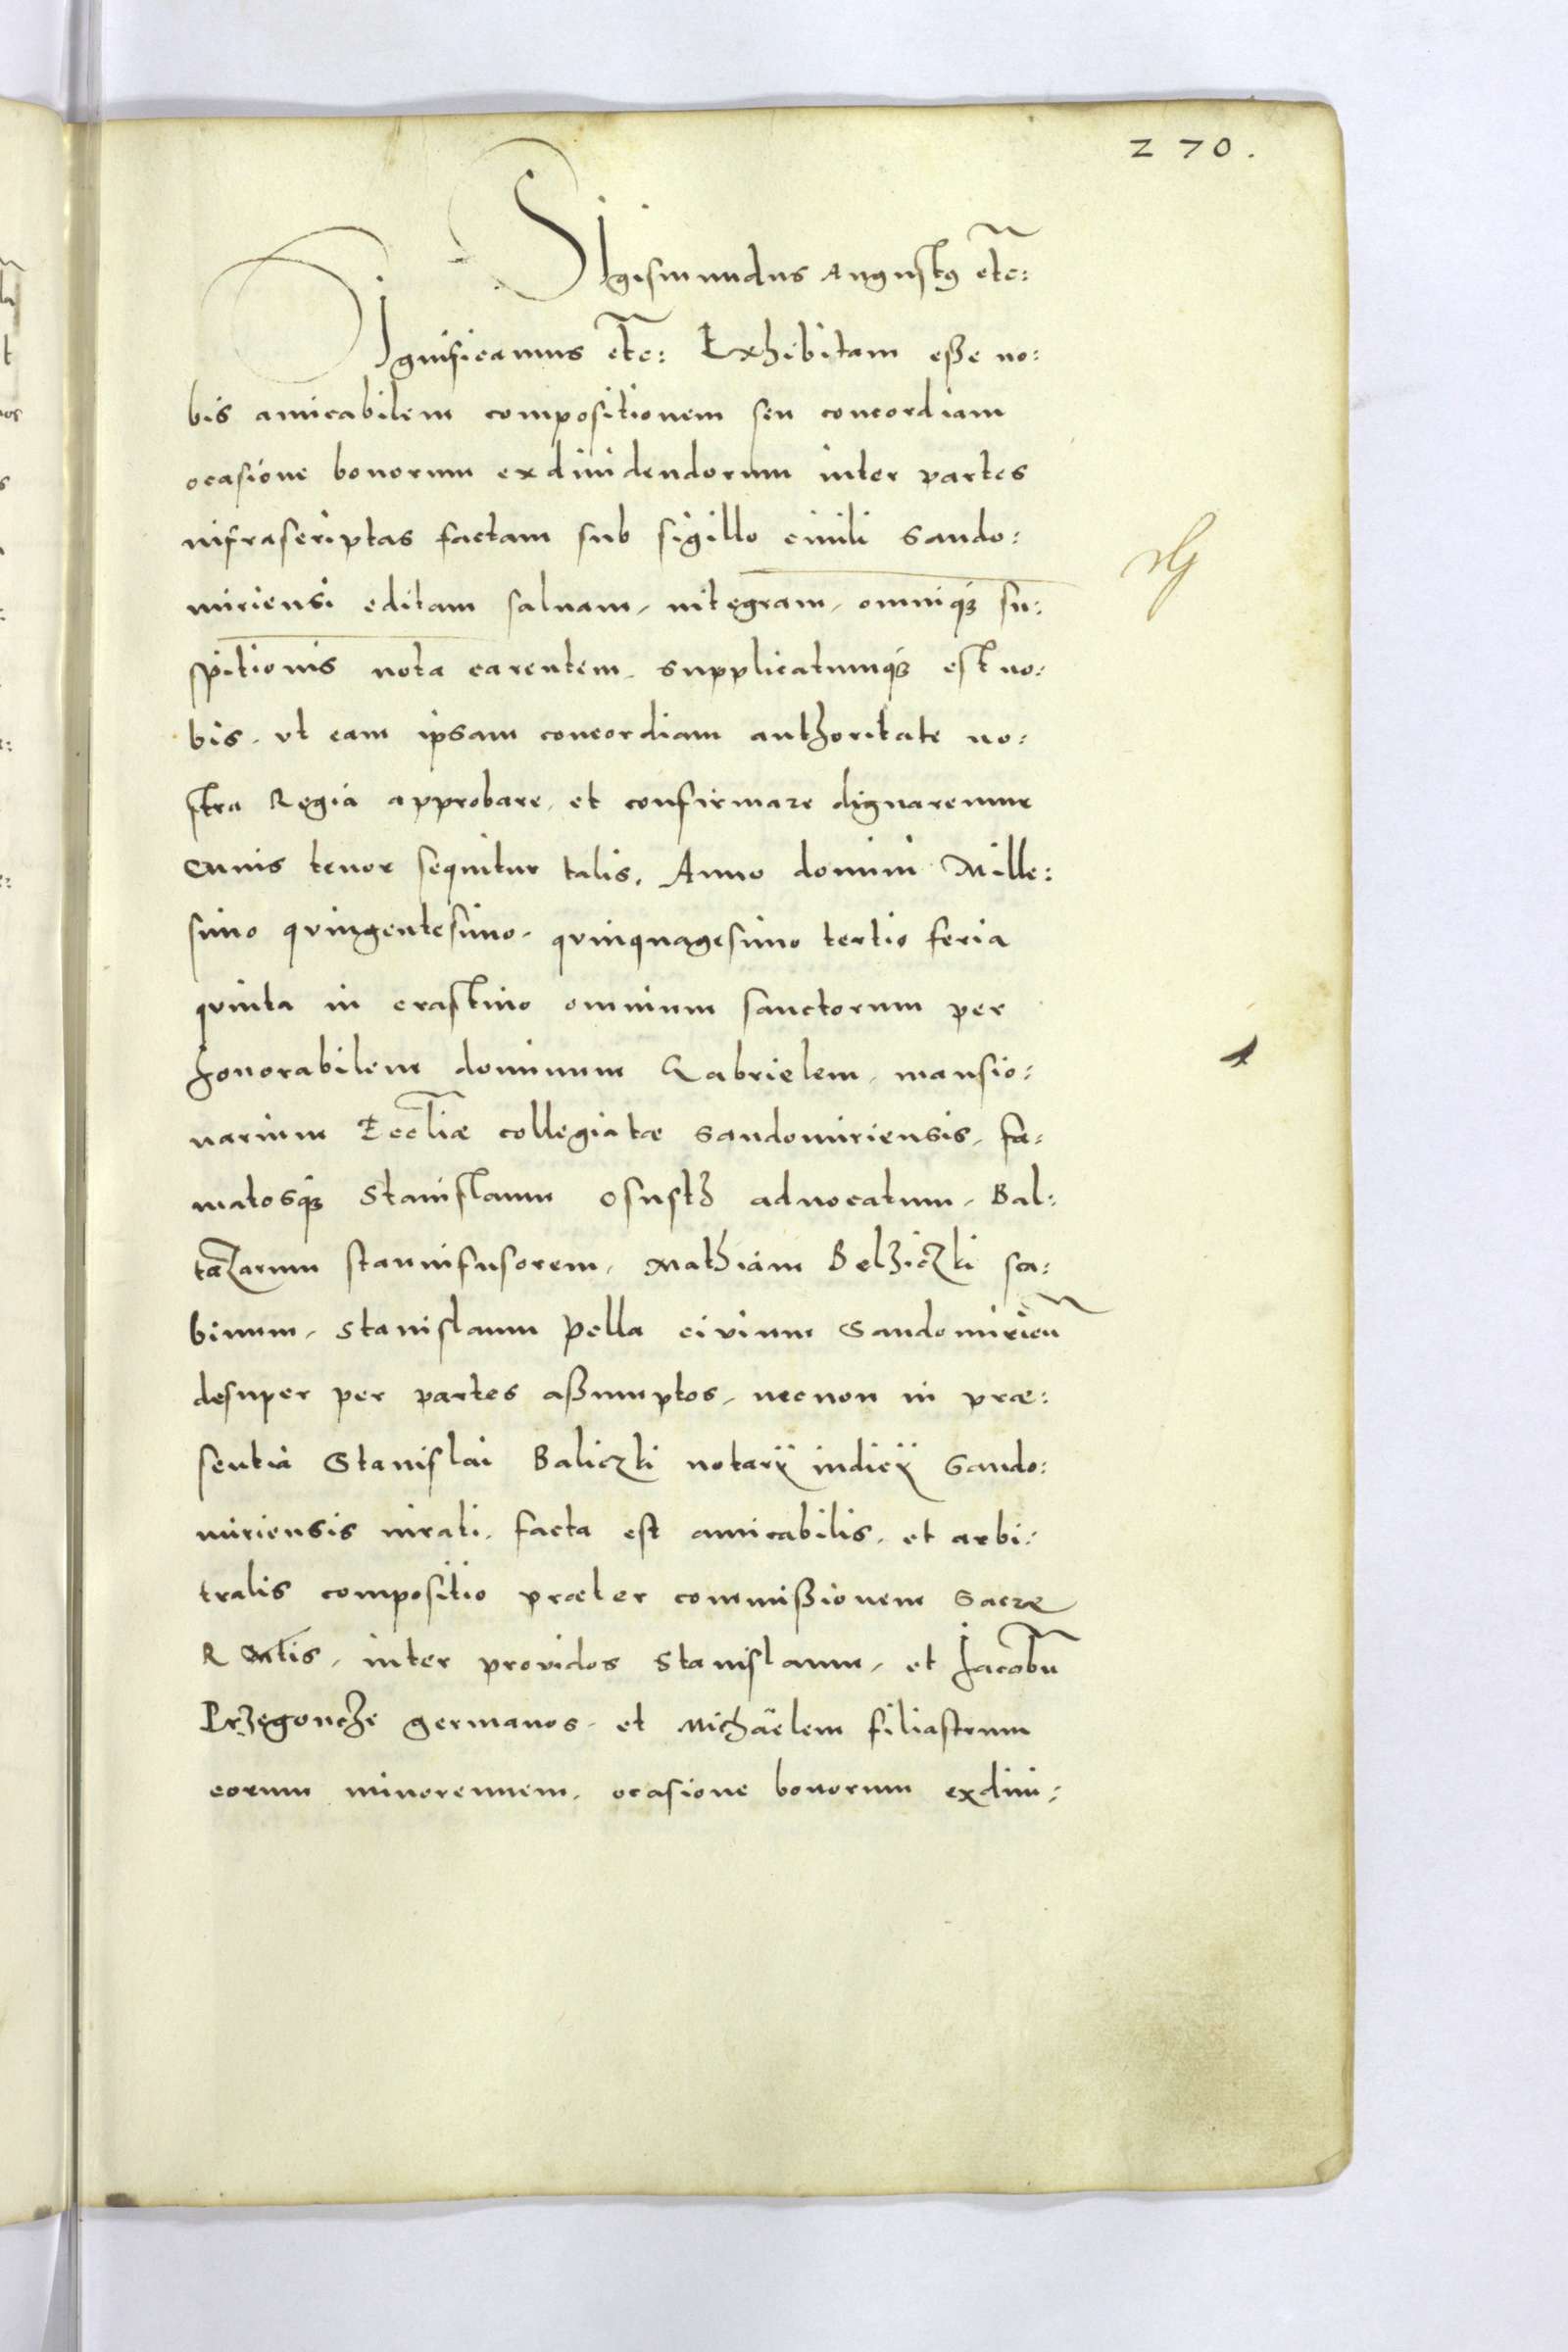 270.
SIgismundus Augustus etc:
Ignificamus etc: Exhibitam eße no:
bis amicabilem compositionem seu concordiam
ocasione bonorum exdiuidendorum inter partes
infrascriptas factam sub sigillo ciuili Sando:
miriensi editam saluam, integram, omnique su:
spitionis nota carentem, supplicatumque est no:
bis, vt eam ipsam concordiam authoritate no:
stra Regia approbare, et confirmare dignaremur
Cuius tenor sequitur talis. Anno domini Mille:
simo qvingentesimo, qvinquagesimo tertio feria
qvinta in crastino omnium sanctorum per
honorabilem dominum Gabrielem, mansio:
narium Eccliæ collegiatæ Sandomiriensis, fa:
matosque Stanislaum Osusth aduocatum, Bal:
tazarum stannifusorem, Mathiam Belziczki sca:
binum, Stanislaum Pella civium Sandomirien
desuper per partes aßumptos, necnon in præ:
sentia Stanislai Baliczki notarij iudicij Sando:
miriensis iurati, facta est amicabilis, et arbi:
tralis compositio præter commißionem Sacræ
R Mtis, inter providos Stanislaum, et Jacobu
Przegoncze germanos, et Michaelem filiastrum
eorum minorennem, ocasione bonorum exdiui: